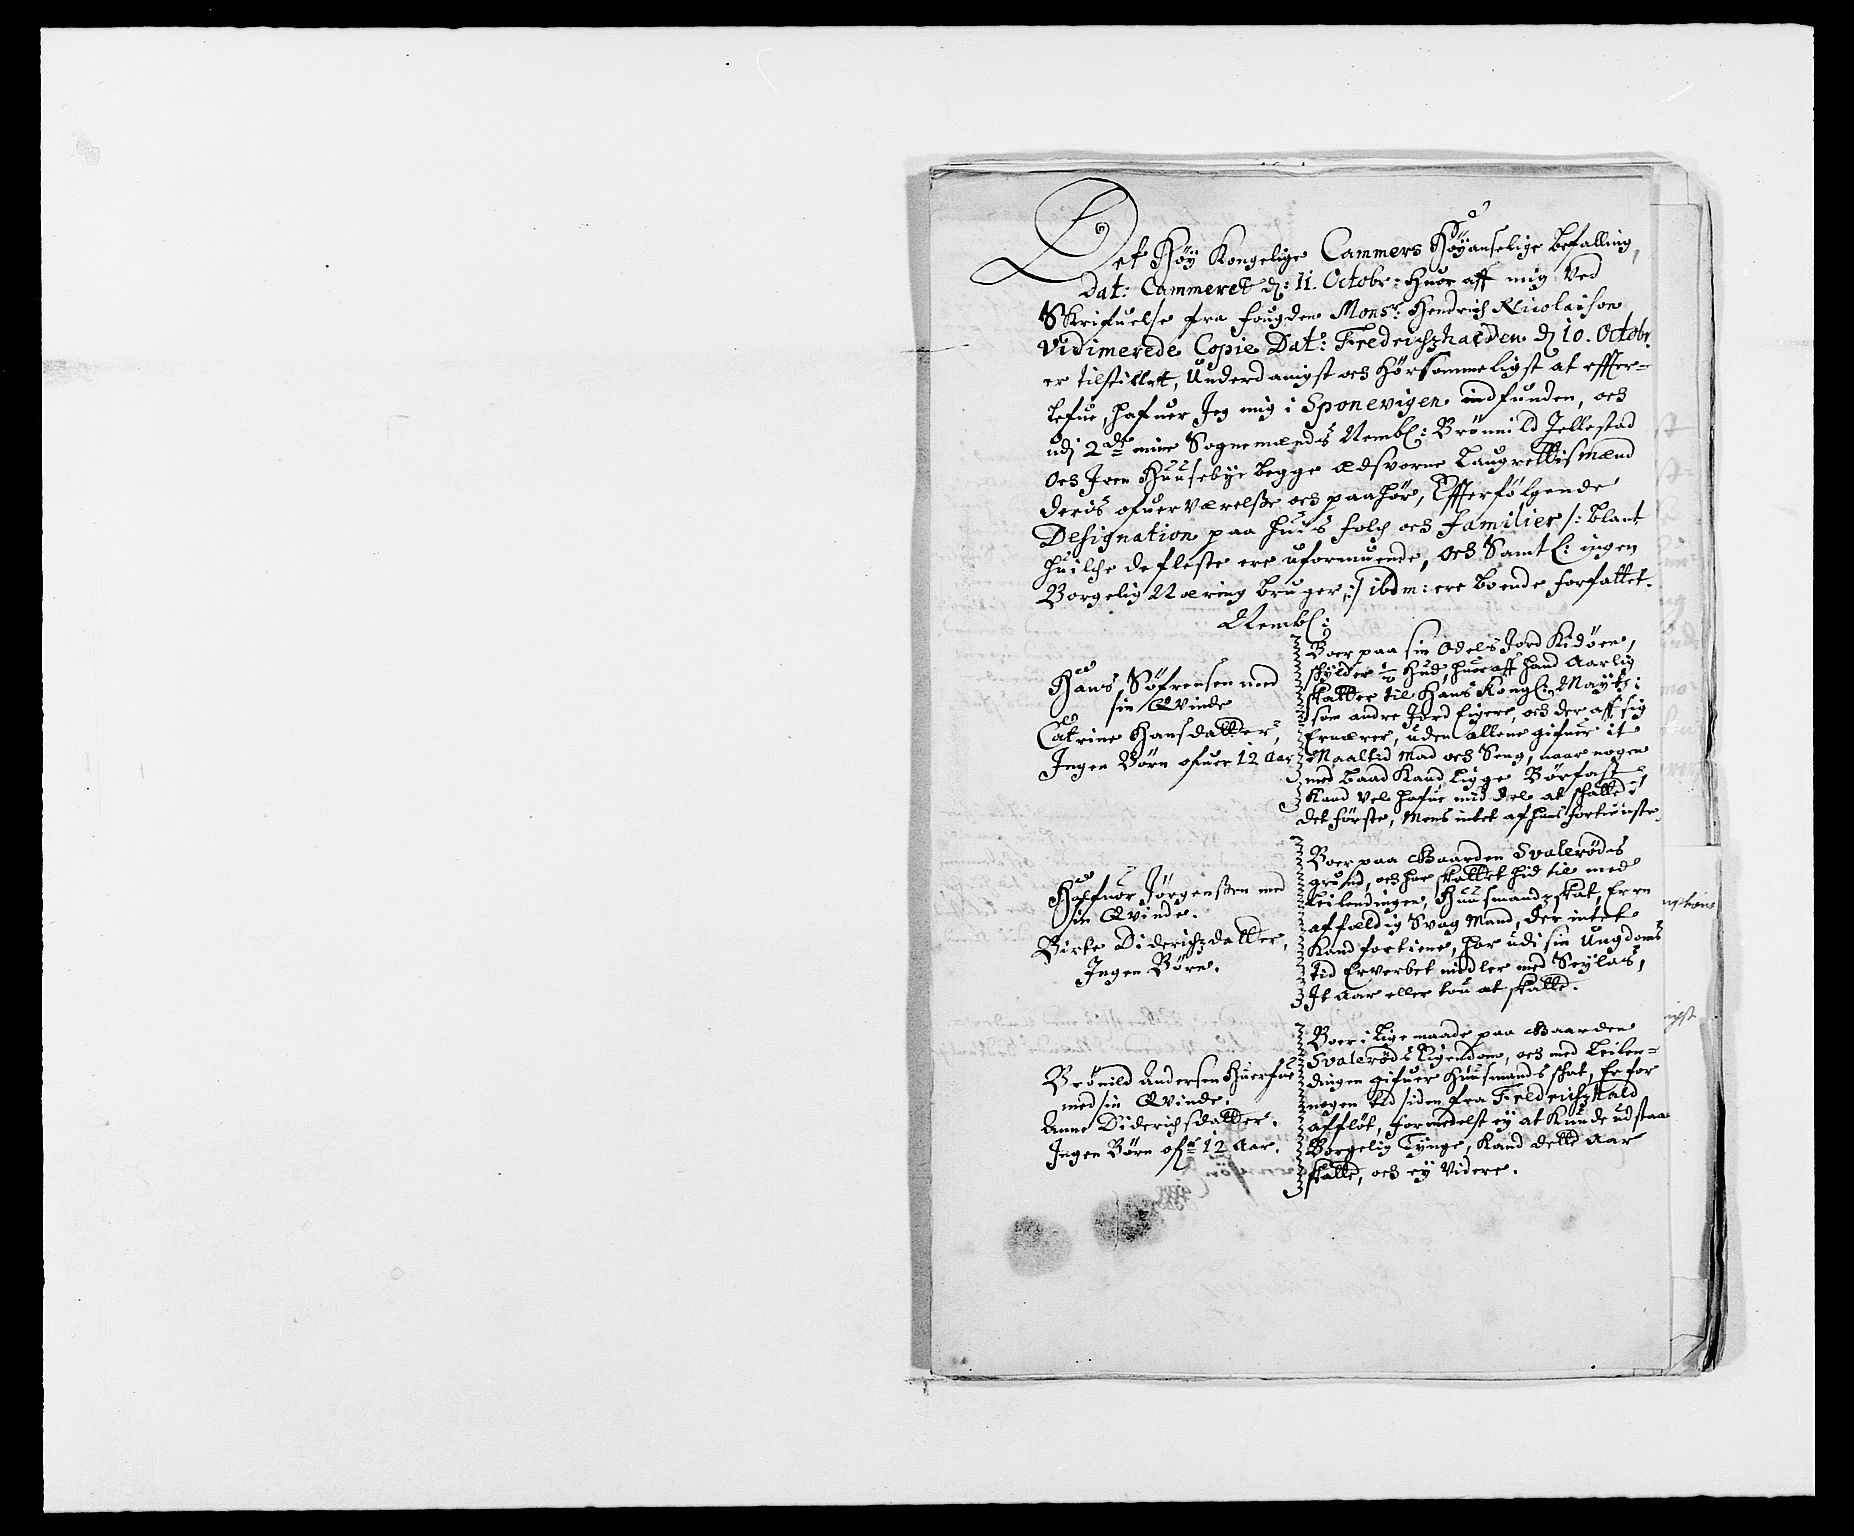 Det Høy Kongelige Cammers Høyanselige befalling,
Dat: Cammeret d: 11. Octobr: huor aff mig Ved
Skrifuelse fra fougden Monsr: Hendrich Nicolaison
Vidimerede Copie Dat: Fredrichshalden d 10. Octobr.
er tilstillet, Underdanigst och hørsommeligst at effter=
lefue, hafuer Jeg mig i Sponevigen indfunden, och
udj 2de mine Sognemænds Nembl: Brønnild Jellestad
och Joen Huusebye begge ædsvorne Laugrettismænd
deris ofuerværelse och paahør, Effterfølgende
Designation paa huis folch och familier /: blant
huilche de fleste ere uformuende, och Samtl: ingen
Borgelig Næring bruger :/ ibdm: ere boende forfattet.
Nembl:
Hans Søfrensen med
sin Qvinde
Catrine Hansdatter,
Ingen Børn ofuer 12 Aar
Boer paa sin Odels Jord Kidøen,
schylder 1/2 Hud, huor aff hand Aarlig
skatter til Hans Kongl: Mayts:
som andre Jord Eigere, och der aff sig
Ernærer, uden allene gifuer it
Maaltid Mad och Seng, naar nogen
med baad Kand ligge Børfast,
Kand vel hafue middel at schatte i
det første, Mens intet af hans fortieniste.
Halfuor Jørgenssen med
sin Qvinde.
Birte Diderichsdatter,
Ingen Børn.
Boer paa Gaarden Svalerøds
grund, och har skattet hid til med
Leilendingen, Huusmandz skat, Er en
affældig Svag Mand, der intet
Kand fortiene, har udi sin Ungdoms
tid Erverbet midler med Seylas,
It Aar eller tou at skatte.
Brønild Andersen Huerfue
med sin Qvinde.
Anne Diderichsdatter.
Ingen Børn ofr 12 Aar.
Boer i lige maade paa Gaarden
Svalerøds Eigendom, och med Leilen=
dingen gifuer Huusmands schat, Er for
nogen tid siden fra Fredrichshald
affløt, formedelst ey at Kunde udstaa
Borgelig Tynge, Kand dette Aar
skatte, och ey Videre.